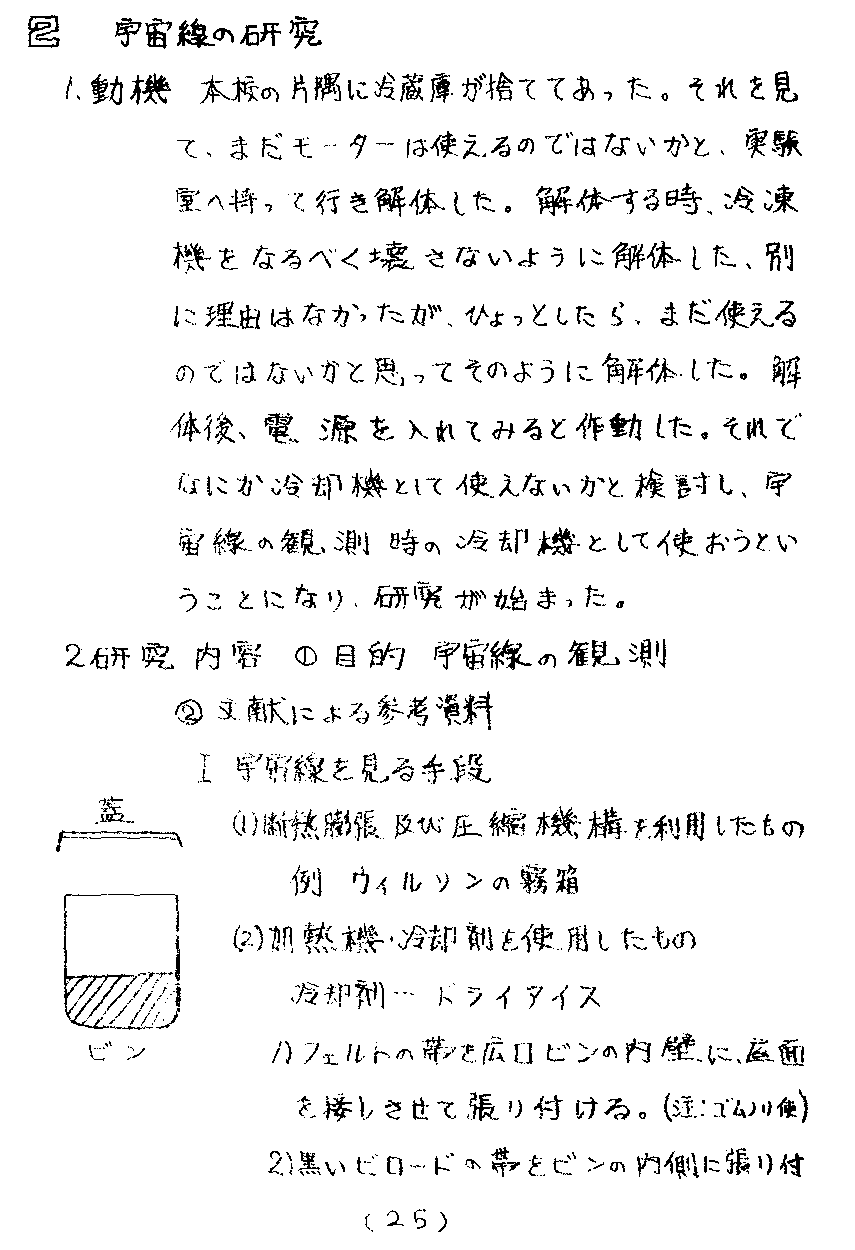 2 宇宙線の研究
1.動機 本校の片隅に冷蔵庫が捨ててあった。それを見
て、まだモーターは使えるのではないかと、実験
室へ持って行き解体した。解体する時、冷凍
機をなるべく壊さないように解体した、別
に理由はなかったが、ひょっとしたら、まだ使える
のではないかと思ってそのように解体した。解
体後、電源を入れてみると作動した。それで
なにか冷却機として使えないかと検討し、宇
宙線の観測時の冷却機として使おうとい
うことになり、研究が始まった。
2研究内容 ①目的 宇宙線の観測
②文献による参考資料
I 宇宙線を見る手段
(1)断熱膨張及び圧縮機構を利用したもの
例 ウィルソンの霧箱
(2)加熱機・冷却剤を使用したもの
冷却剤…ドライアイス
1)フェルトの帯を広口ビンの内壁に、底面
を接しさせて張り付ける。(注:ゴムノリ使)
2)黒いビロードの帯をビンの内側に張り付
蓋
ビン
(25)